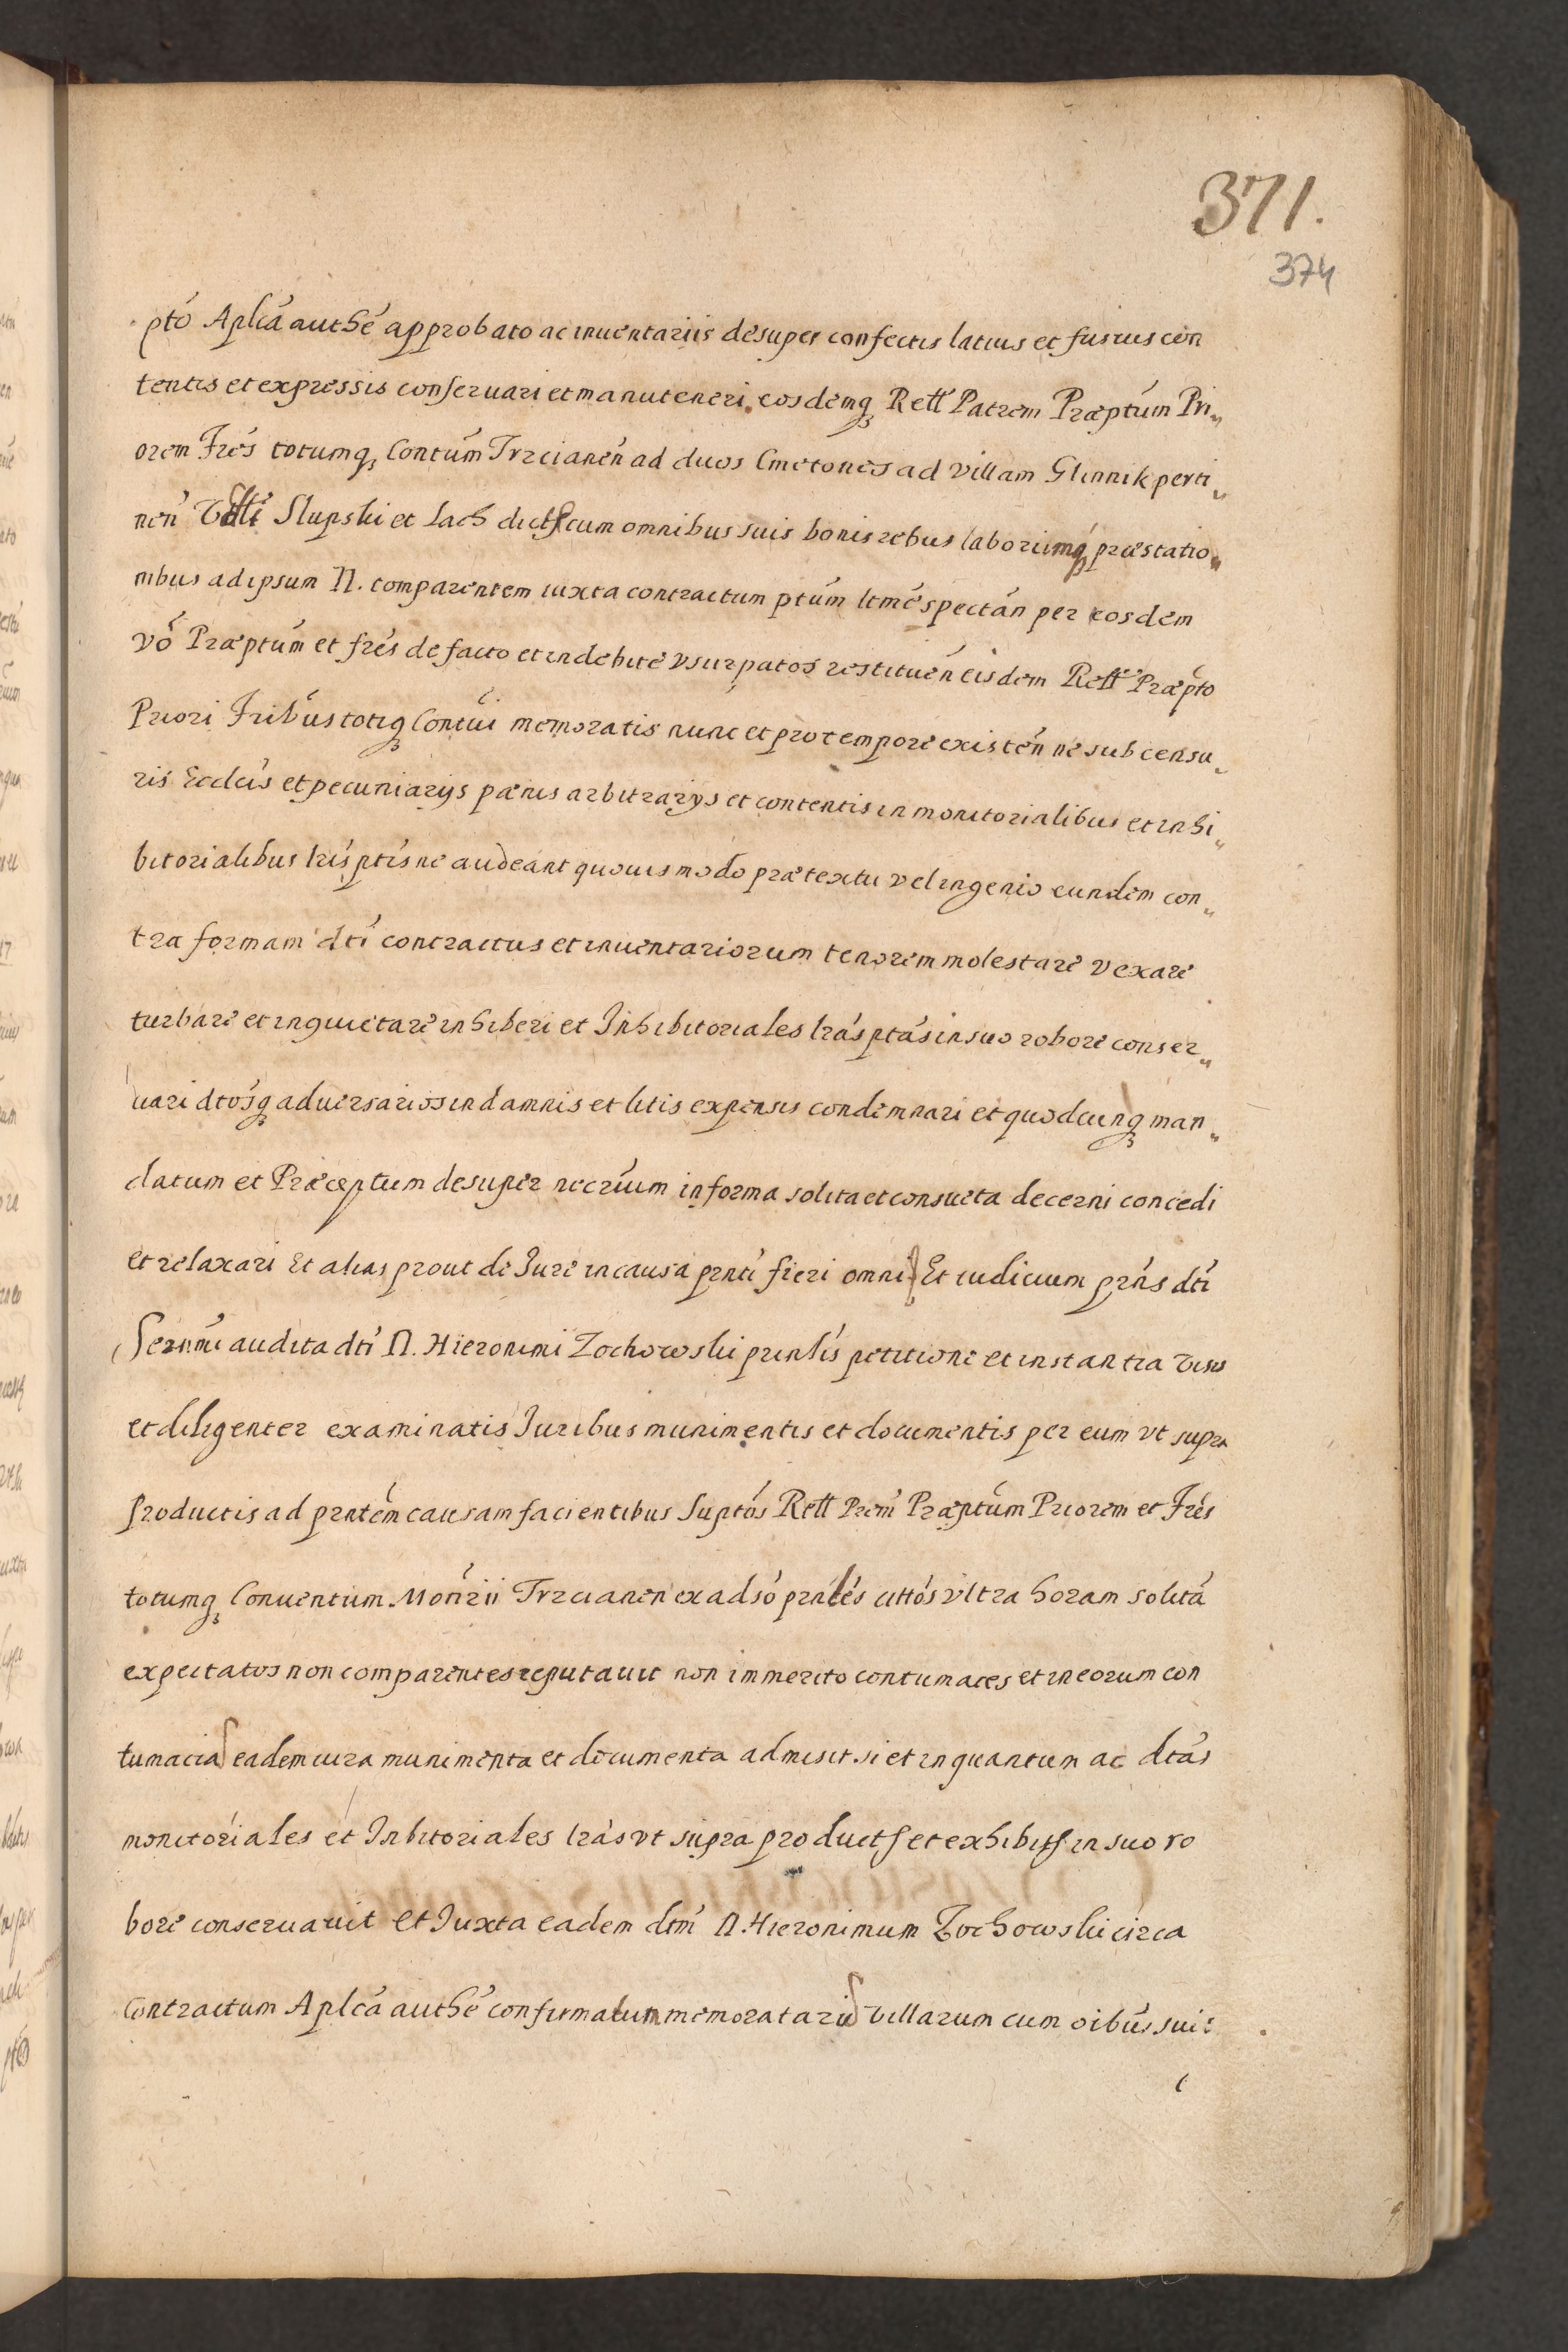 371.
374
ptó Aplcá authé approbato ac inuentariis desuper confectis latius et fusius con
tentis et expressis conseruari et manuteneri. eosdemq Rett Patrem Præptúm Pri„
orem Frés totumq Contúm Trzcianeń ad duos Cmetones ad villam Glinnik perti„
neń Slupski et Lach dict cum omnibus suis bonis rebus laboriumq præstatio„
nibus ad ipsum N. comparentem iuxta contractum ptúm ltmé spectáń per eosdem
vó Præptúm et frés de facto et indebite vsurpatos restituéń eisdem Rett Præpto
Priori Fribús totiq Contúi memoratis nunc et pro tempore existéń ne sub censu„
ris Ecclcis et pecuniarijs pænis arbitrarijs et contentis in monitorialibus et inhi„
bitorialibus lrís ptís ne audeant quouis modo prætextu vel ingenio eundem con„
tra formam dtí contractus et inuentariorum tenorem molestare vexare
turbare et inquietare inhiberi et Inhibitoriales lrás ptás in suo robore conser„
uari dtósq aduersarios in damnis et litis expensis condemnari et quodcunq man„
datum et Præceptum desuper necrium in forma solita et consueta decerni concedi
et relaxari Et alias prout de Jure in causa prnti fieri omni Et iudicium prńs dtí
Serńmi audita dtí N. Hieronimi Zochowski printis petitione et instantia visis
et diligenter examinatis Juribus munimentis et documentis per eum vt supra
productis ad prntém causam facientibus Suptós Rett Prem Præptúm Priorem et Frés
totumq Conuentum Monrii Trzcianeń ex adsó prntes cittós vltra horam solitá
expectatos non comparentes reputauit non immerito contumaces et in eorum con
tumacia eadem iura munimenta et documenta admisit. si et in quantum ac dtás
monitoriales et Inbitoriales lrás vt supra product et exhibit in suo ro
bore conseruauit et Juxta eadem dtm N. Hieronimum Zochowski circa
Contractum Aplcá authé confirmatum memoratarū villarum cum oibús suis